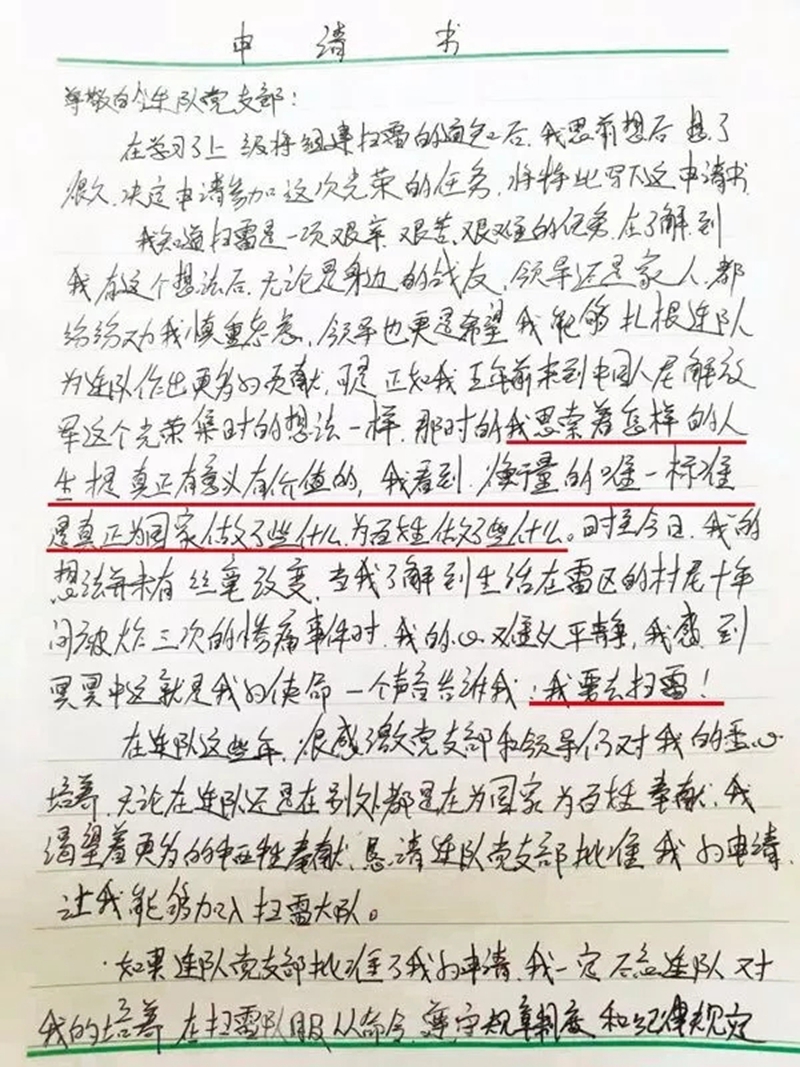 申请书
尊敬的连队党支部：
在学习了上级将组建扫雷的通知后，我思前想后想了
很久，决定申请参加这次光荣的任务，特此写下这申请书
我知道扫雷是一项艰辛、艰苦、艰难的任务，在了解到
我有这个想法后，无论是身边的战友，领导还是家人，都
纷纷劝我慎重考虑，领导也更是希望我能够扎根连队
为连队作出更多的贡献，可是正如我五年前来到中国人民解放
军这个光荣集时的想法一样，那时的我思索着怎样的人
生提真正有意义有价值的，我看到，衡量的唯一标准
是真正为国家做了些什么，为百姓做了些什么。时至今日，我的
想法并未有丝毫改变，当我了解到生活在雷区的村民十年
间被炸三次的惨痛事件时，我的心难以平静，我感到
冥冥中这就是我的使命一个声音告诉我：我要去扫雷！
在连队这些年，很感激党支部和领导们对我的悉心
培养，无论在连队还是在别处都是在为国家为百姓奉献，我
渴望着更多的牺牲奉献，恳请连队党支部批准我的申请，
让我能够加入扫雷大队。
如果连队党支部批准了我的申请，我一定不忘连队对
我的培养，在扫雷队服从命令，遵守规章制度和纪律规定